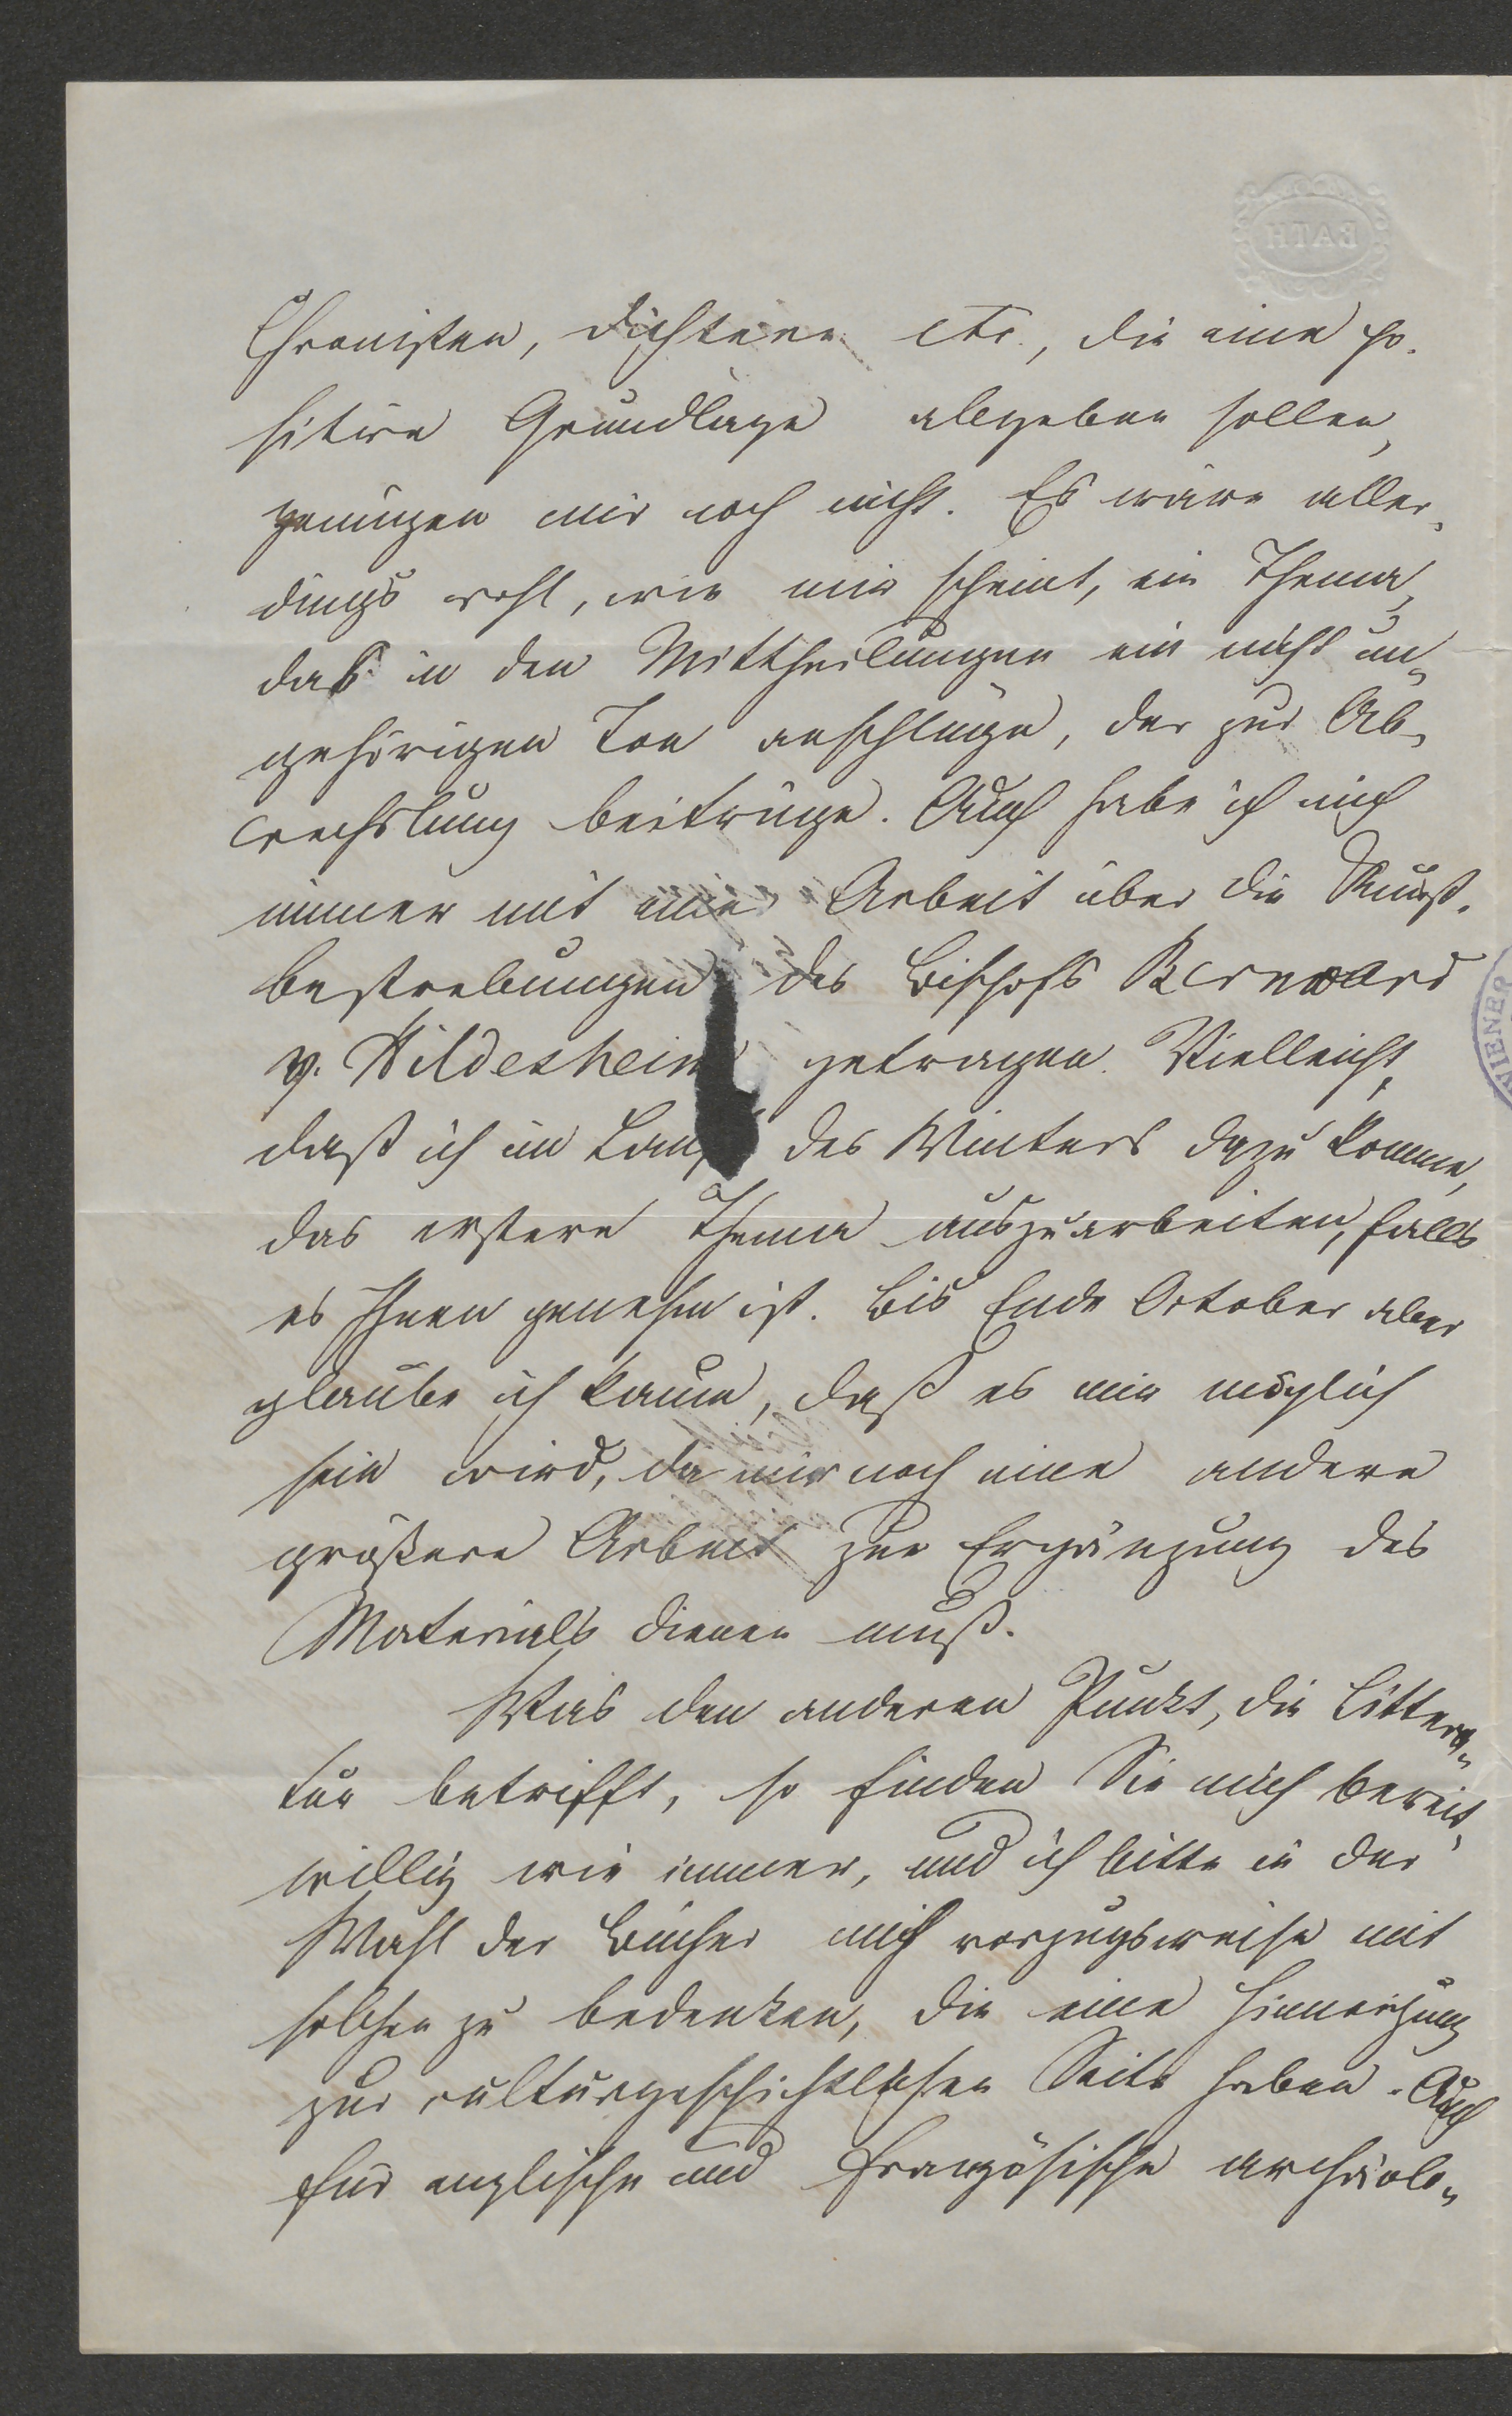 BATH
Chronisten, Dichtern etc., die eine po-
sitive Grundlage abgeben sollen,
genügen mir noch nicht. Es wäre aller-
dings wohl, wie mir scheint, ein Thema,
das in den Mittheilungen ein nicht un-
gehörigen Ton anschlüge, der zur Ab-
wechslung beitrüge. Auch habe ich mich
immer mit einer Arbeit über die Kunst-
bestrebungen des Bischofs Bernward
v. Hildesheim getragen. Vielleicht,
daß ich im Lauf des Winters dazu komme,
das erstere Thema auszuarbeiten, falls
es Ihnen genehm ist. Bis Ende October aber
glaube ich kaum, daß es mir möglich
sein wird, da mir noch eine andere
größere Arbeit zur Ergänzung des
Materials dienen muß.
Was den anderen Punkt, die Littera-
tur betrifft, so finden Sie mich bereit-
willig wie immer, und ich bitte in der
Wahl der Bücher mich vorzugsweise mit
solchen zu bedenken, die eine Hinneigung
zur culturgeschichtlichen Seite haben. Auch
für englische und französische archäolo-
WIENER